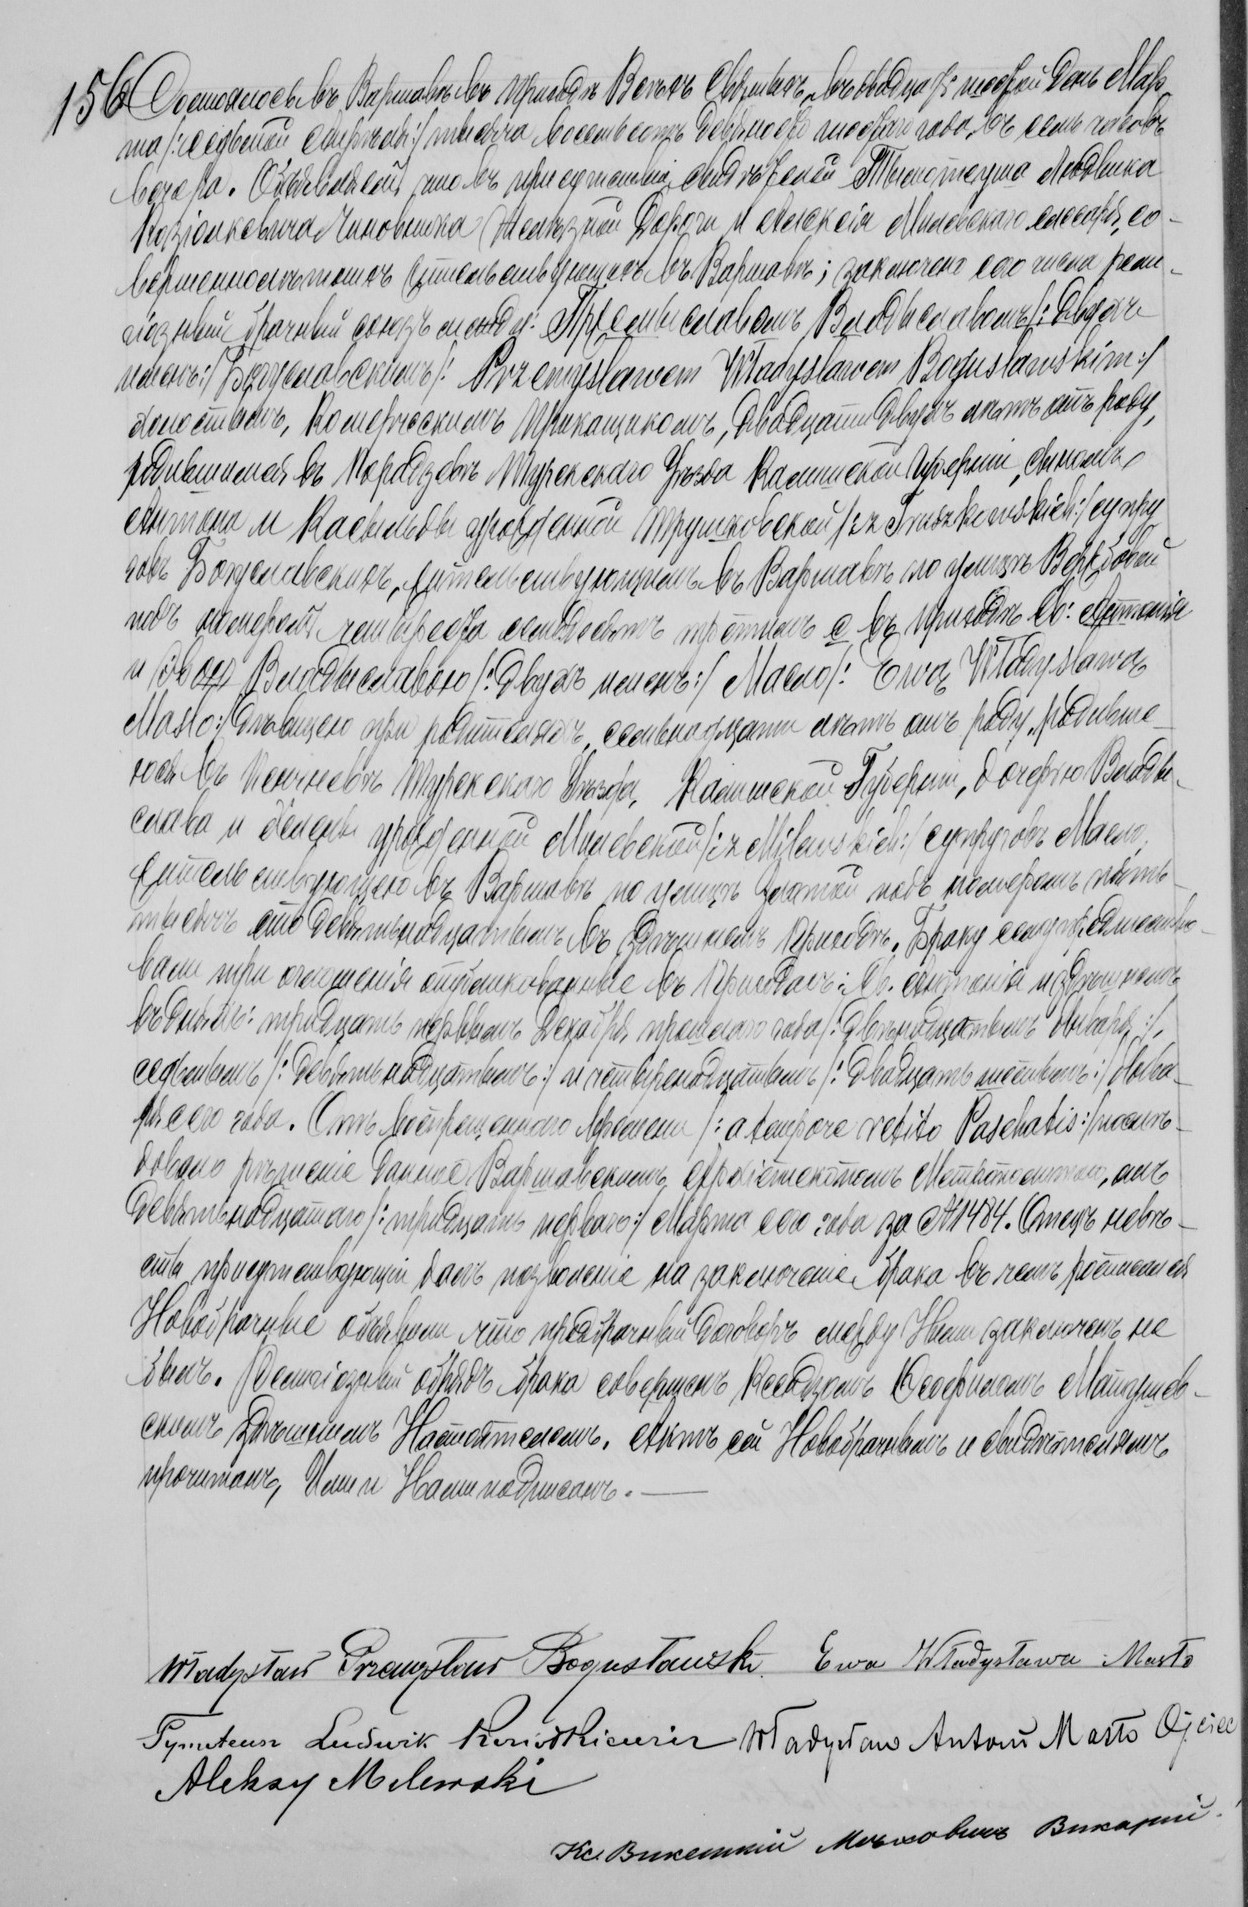 156 Состоялось въ Варшавѣ въ приходѣ Всѣхъ Святыхъ, въ двадцать шестой день Мар-
та /:седьмой Апрѣля:/ тысяча восемьсотъ девяносто шестого года, въ семь часовъ
вечера. Объявляемъ, что въ присутствіи свидѣтелей Тымотеуша Людвика
Козіолкевича Чиновника Желѣзной Дороги и Алексѣя Милевскаго слесаря, со-
вершеннолѣтнихъ жительствующихъ въ Варшавѣ; заключенъ сего числа рели-
гіозный брачный союзъ между: Пржемыславомъ Владыславомъ /:двухъ
именъ:/ Богуславскимъ /: Przemysławem Władysławem Bogusławskim:/
холостымъ, Комерческимъ Прикащикомъ, двадцати двухъ лѣтъ отъ роду,
родившимся въ Турекскаго Уѣзда Калишской Губерніи, сыномъ
Антона и Касыльды урожденной Трушковской /:z Truszkowskich:/ супру
говъ Богуславскихъ, жительствующимъ въ Варшавѣ по улицѣ Вержбовой
подъ номеромъ четыреста семьдесятъ третьимъ с въ приходѣ Св: Антонія
и Евою Владыславою /:двухъ именъ:/ Масло /: Ewą Władysławą
Masło:/ дѣвицею при родителяхъ, семьнадцати лѣтъ отъ роду, родивше-
юся въ Турекскаго Уѣзда, Калишской Губерніи, дочерью Влады-
слава и Елены урожденной Милевской /:z Milewskich:/ супруговъ Масло,
жительствующею въ Варшавѣ по улицѣ Златой подъ номеромъ пять
тысячъ сто девятьнадцатымъ въ здѣшнемъ приходѣ. Браку сему предшество-
вали три оглашенія опубликованныя въ приходахъ: Св. Антонія и здѣшнемъ
въ дняхъ: тридцать первымъ Декабря прошлаго года /:двѣнадцатымъ Января:/,
седьмымъ /:девятьнадцатымъ:/ и четырнадцатымъ /:двадцать шестымъ:/ Янва-
ря сего года. Отъ воспрещеннаго времени /:a tempore vetito Paschatis:/ послѣ-
довало рѣшеніе данное Варшавскимъ Архіепископомъ Митрополитомъ, отъ
девятьнадцатаго /:тридцать перваго:/ Марта сего года за №1484. Отецъ невѣ-
сты присутствующій далъ позволеніе на заключеніе брака въ чемъ росписался
Новобрачные объявили что предбрачный договоръ между Ними заключенъ не
былъ. Религіозный обрядъ брака совершенъ Ксендзомъ Зефириномъ Матушев-
скимъ здѣшнимъ Настоятелемъ. Актъ сей Новобрачнымъ и свидѣтелямъ
прочитанъ, Ими и Нами подписанъ.
Władysław Przemysław Bogusławski. Ewa Władysława Masło
Tymoteusz Ludwik Koziołkiewicz Władysław Antoni Masło Ojciec
Aleksy Milewski
Кс. Викентій Мѣховичъ Викарій.